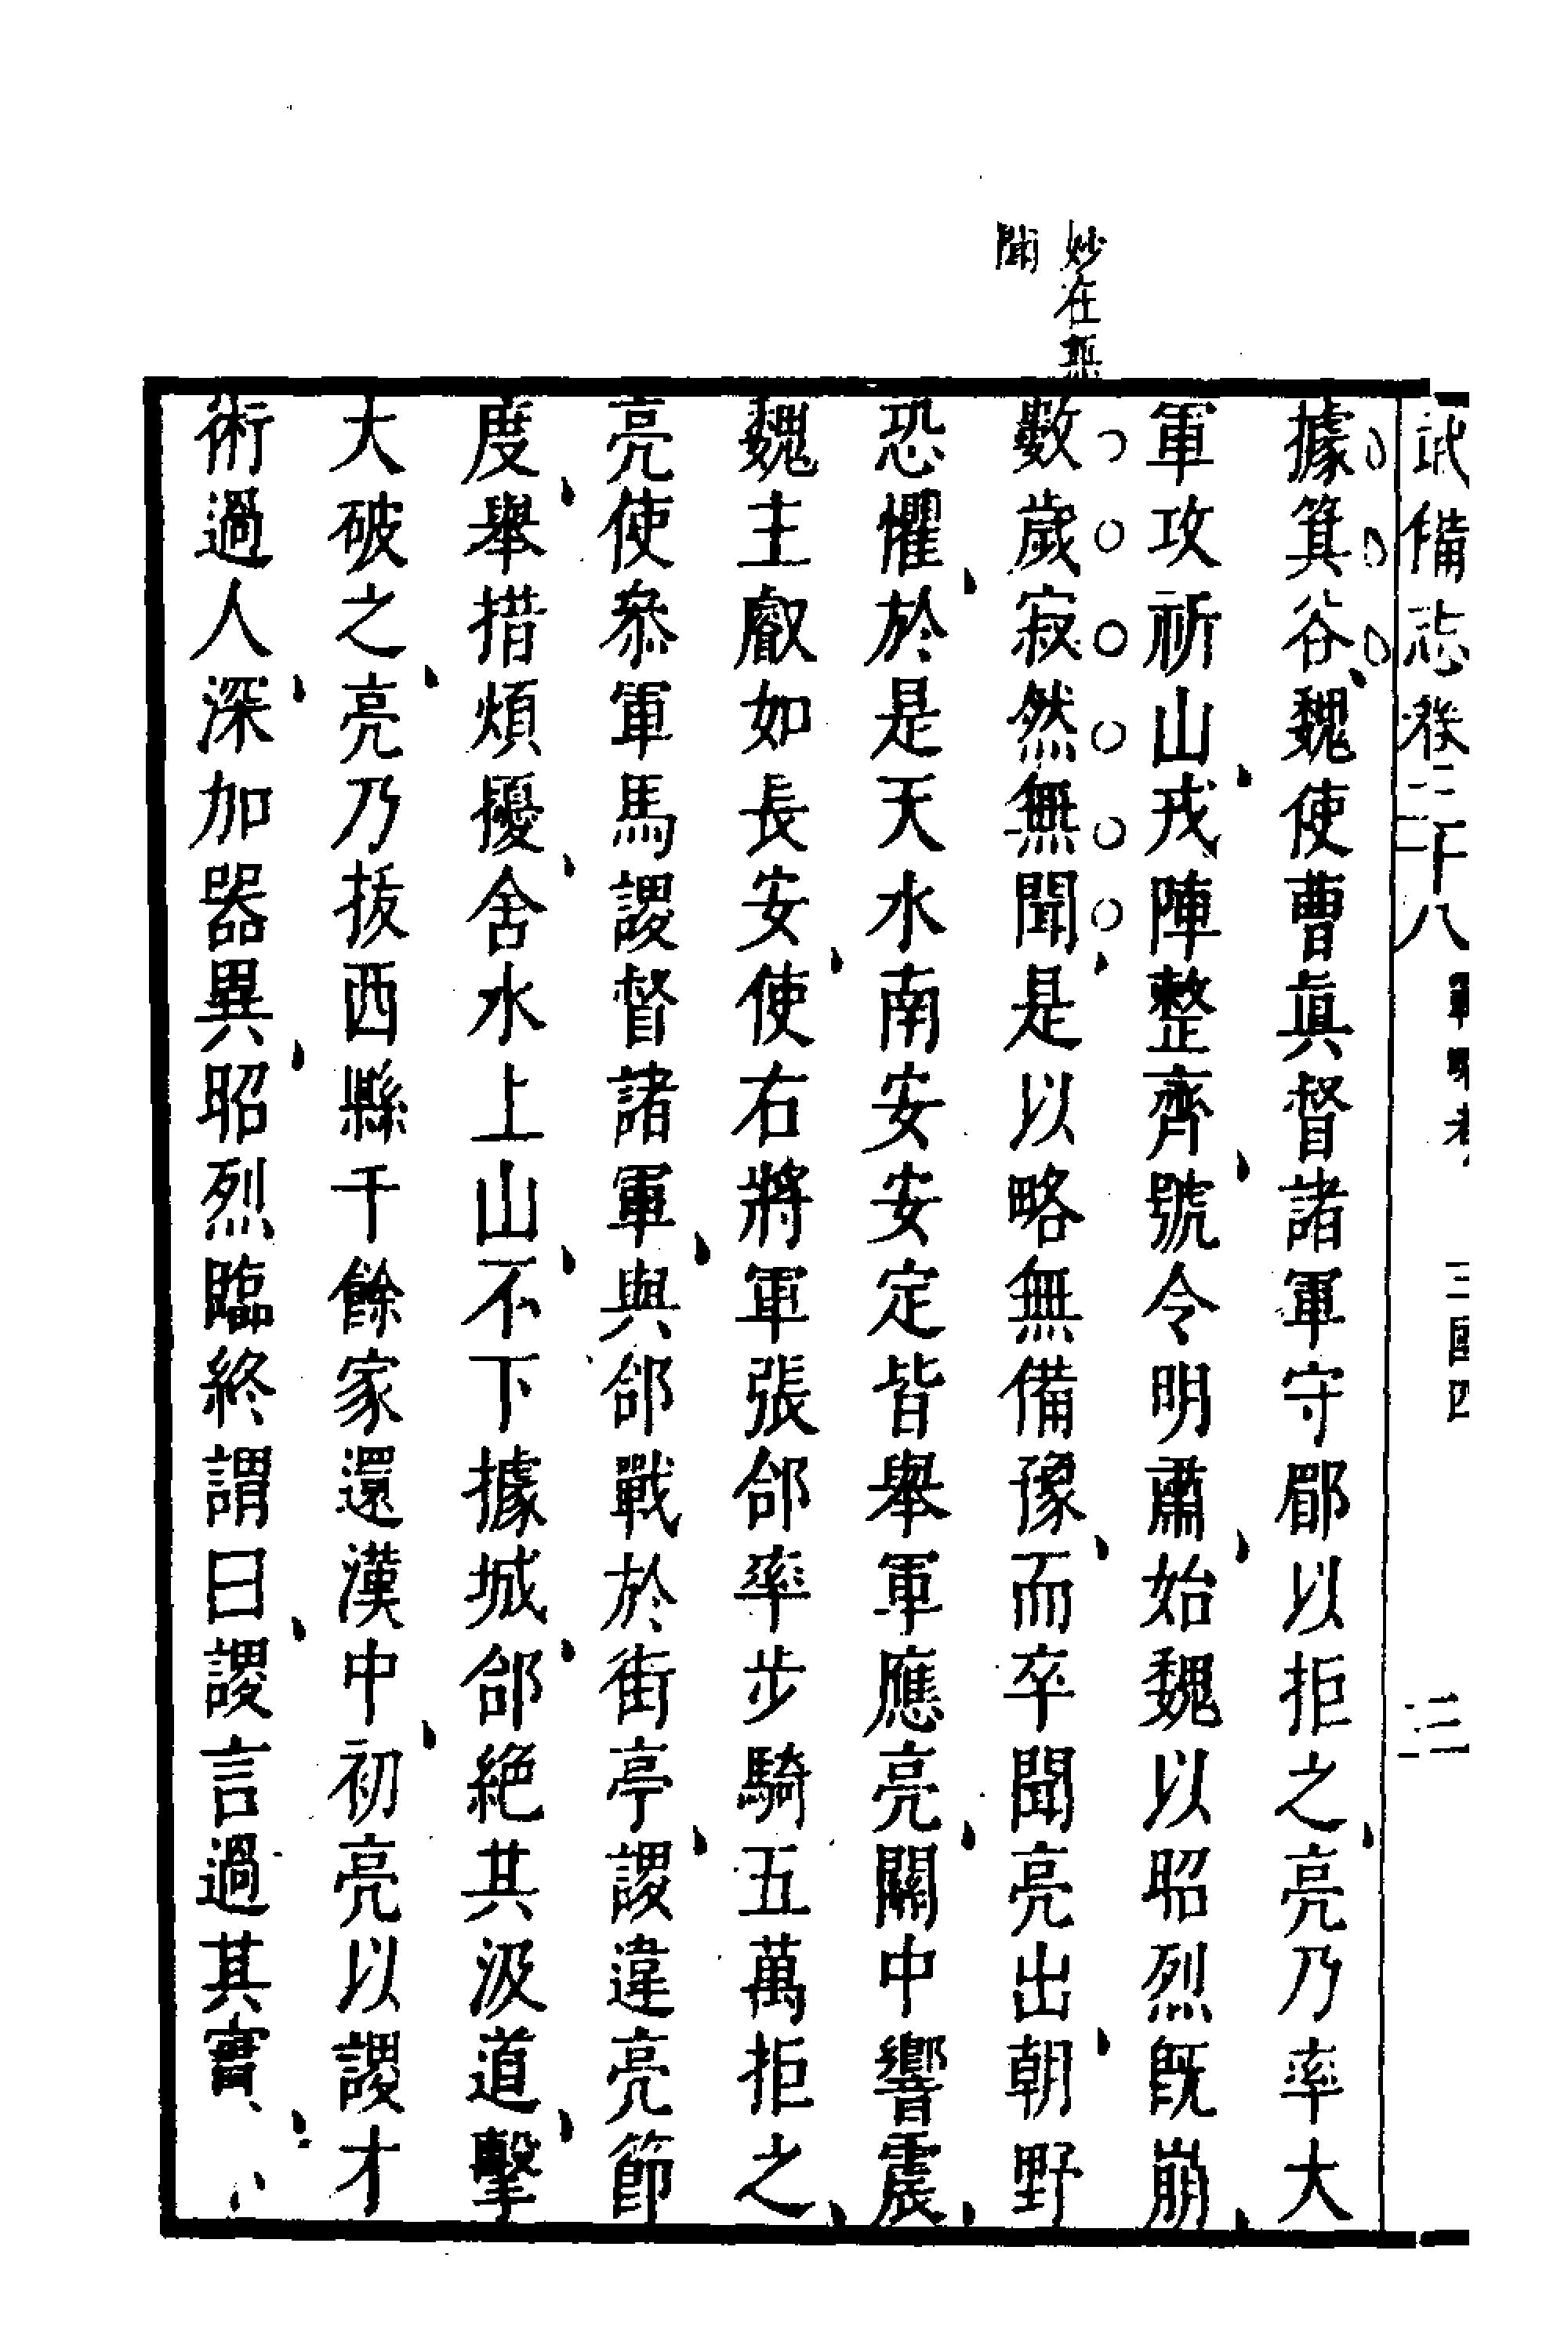 武備志卷三十八 軍略考 三國四 三
妙在無
聞
據箕谷魏使曹眞督諸軍守郿以拒之亮乃率大
軍攻祈山戎陣整齊號令明肅始魏以昭烈旣崩
數歲寂然無聞是以略無備豫而卒聞亮出朝野
恐懼於是天水南安安定皆舉軍應亮關中響震
魏主叡如長安使右將軍張郃率步騎五萬拒之
亮使叅軍馬謖督諸軍與郃戰於街亭謖違亮節
度舉措煩擾舍水上山不下據城郃絕其汲道擊
大破之亮乃拔西縣千餘家還漢中初亮以謖才
術過人深加器異昭烈臨終謂曰謖言過其實